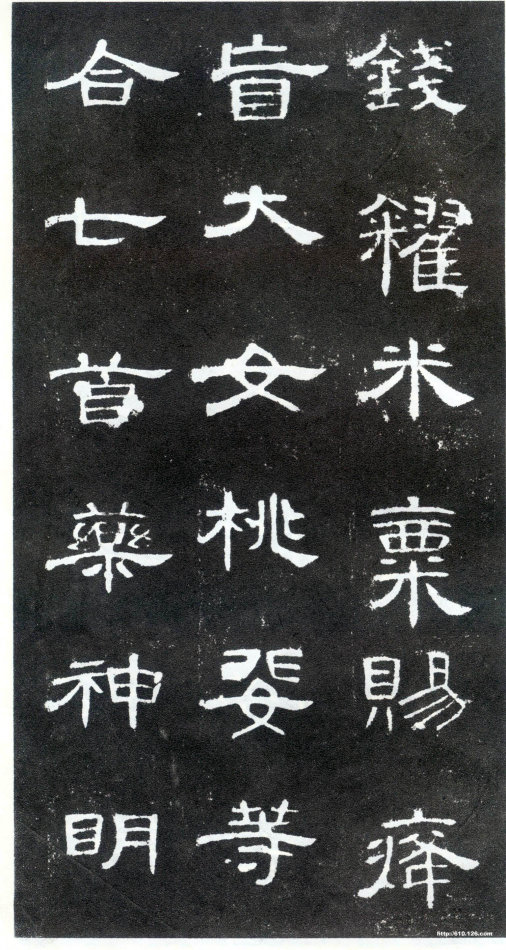 錢糴米粟賜癃
盲大女桃婓等
合七首藥神明
http://610.126.com